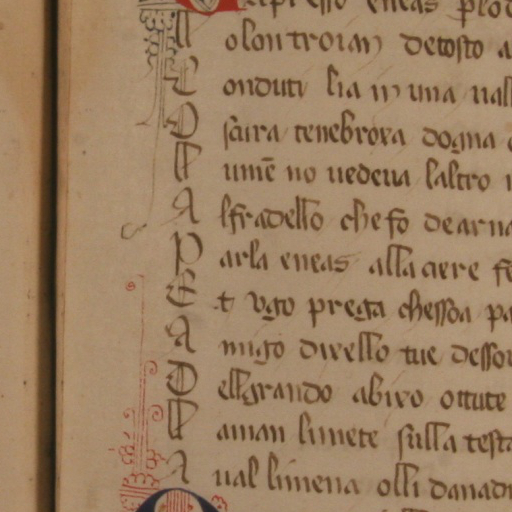 espresso eneas
N olon troian detosto
C onduti lia in una vall
O scura tenebrora dogna
N ume no vedeva laltro
A lfradello che fo dearna
P arla eneas alla aere
E t vgo prega chessoa pa
A migo divello tue dessor
D ellgrando abixo ottute
L aman limete sulla testa
A val limena olli danad